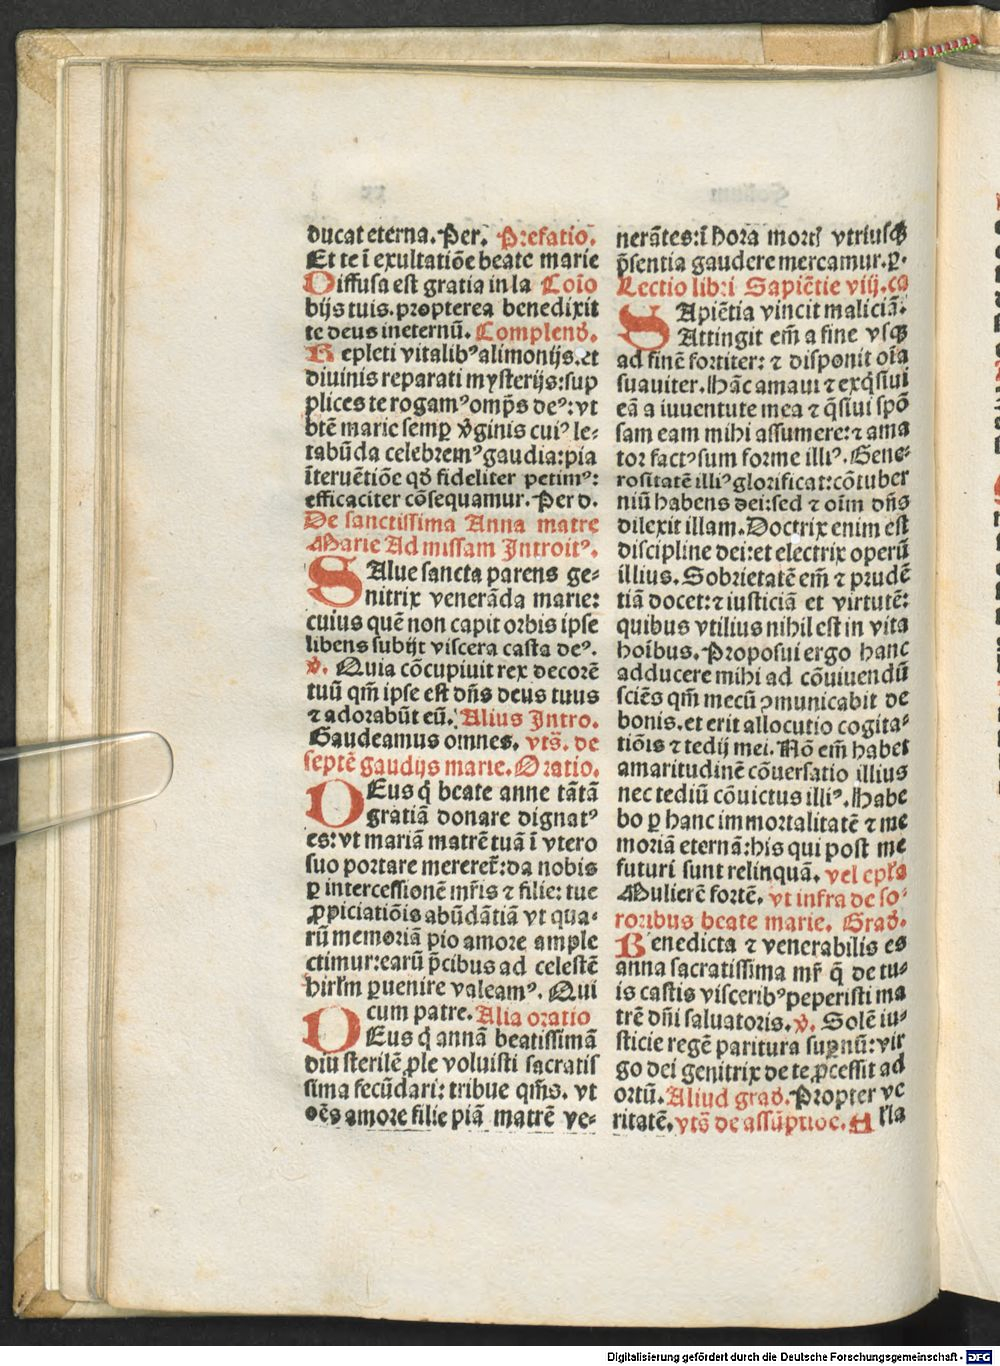 ducat eterna. Per. Prefatio.
Et te ī exultatiōe beate marie
Diffusa est gratia in la Coīo
bijs tuis. propterea benedixit
te deus ineternū. Complend.
Repleti vitalibꝰ alimonijs. et
diuinis reparati mysterijs: sup
plices te rogamꝰ omp̄s deꝰ: vt
btē marie semꝑ v̓ginis cuiꝰ le⸗
tabūda celebremꝰ gaudia: pia
īteruētiōe qd̓ fideliter petimꝰ:
efficaciter cōsequamur. Per d.
De sanctissima Anna matre
Marie Ad missam Introitꝰ.
SAlue sancta parens ge⸗
nitrix venerāda marie:
cuius quē non capit orbis ipse
libens subijt viscera casta deꝰ.
v̓. Quia cōcupiuit rex decorē
tuū qm̄ ipse est dn̄s deus tuus
⁊ adorabūt eū. Alius Intro.
Gaudeamus omnes. vts̄. de
septē gaudijs marie. Oratio.
DEus q̓ beate anne tātā
gratiā donare dignatꝰ
es: vt mariā matrē tuā ī vtero
suo portare mereret̄: da nobis
ꝑ intercessionē mr̄is ⁊ filie: tue
ꝓpiciatiōis abūdātiā vt qua⸗
rū memoriā pio amore ample
ctimur: earū p̄cibus ad celestē
hirl̓m ꝑuenire valeamꝰ. Qui
cum patre. Alia oratio
DEus q̓ annā beatissimā
diu sterilē ꝓle voluisti sacratis
sima fecūdari: tribue qm̄s. vt
oēs amore filie piā matrē ve⸗
nerātes: ī hora mort̓ vtriusqꝫ
p̄sentia gaudere mereamur. ꝑ.
Lectio libri Sapiētie viij. ca
SApiētia vincit maliciā.
Attingit em̄ a fine vsqꝫ
ad finē fortiter: ⁊ disponit oīa
suauiter. Hāc amaui ⁊ exq̓siui
eā a iuuentute mea ⁊ q̄siui spō
sam eam mihi assumere: ⁊ ama
tor factꝰ sum forme illiꝰ. Gene⸗
rositatē illiꝰ glorificat: cōtuber
niū habens dei: sed ⁊ oīm dn̄s
dilexit illam. Doctrix enim est
discipline dei: et electrix operū
illius. Sobrietatē em̄ ⁊ prudē
tiā docet: ⁊ iusticiā et virtutē:
quibus vtilius nihil est in vita
hoībus. Proposui ergo hanc
adducere mihi ad cōuiuendū
sciēs qm̄ mecū ꝯmunicabit de
bonis. et erit allocutio cogita⸗
tiōis ⁊ tedij mei. Nō em̄ habet
amaritudinē cōuersatio illius
nec tediū cōuictus illiꝰ. Habe
bo ꝑ hanc immortalitatē ⁊ me
moriā eternā: his qui post me
futuri sunt relinquā. vel ep̄la
Mulierē fortē. vt infra de so⸗
roribus beate marie. Grad.
Benedicta ⁊ venerabilis es
anna sacratissima mr̄ q̄ de tu⸗
is castis visceribꝰ peperisti ma
trē dn̄i saluatoris. v̓. Solē iu⸗
sticie regē paritura suꝑnū: vir
go dei genitrix de te ꝓcessit ad
ortū. Aliud grad. Propter ve
ritatē. vts̄ de assūptioe. Alla
Digitalisierung gefördert durch die Deutsche Forschungsgemeinschaft - DFG